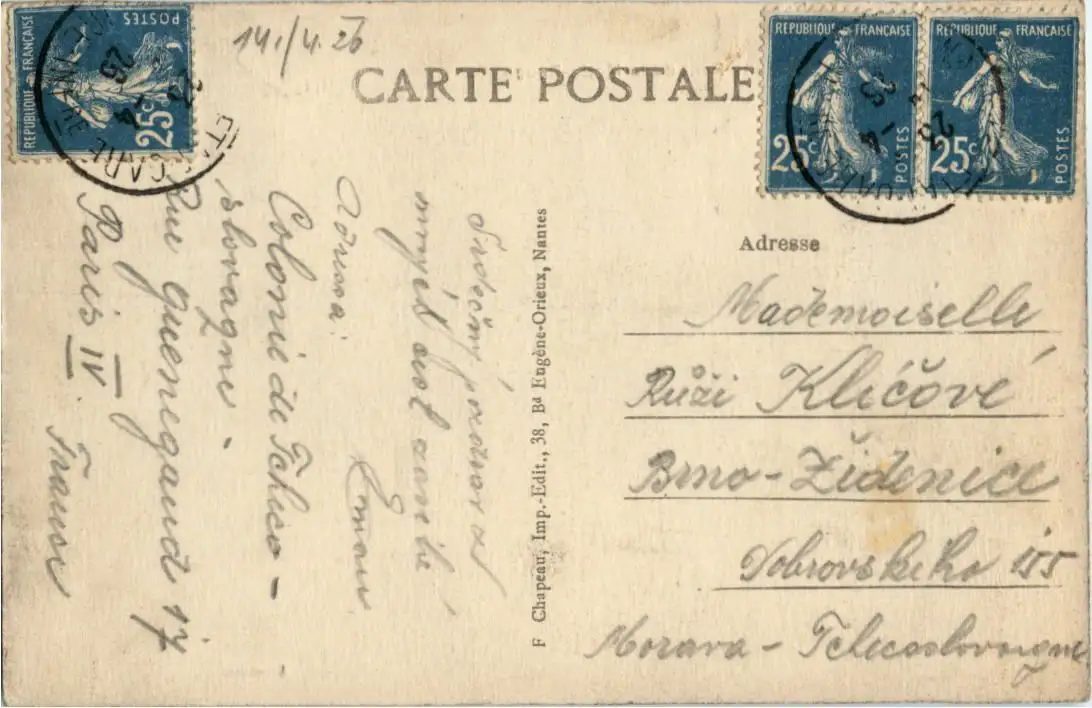 14./4.26
CARTE POSTALE
REPUBLIQUE FRANÇAISE
25c
POSTES
REPUBLIQUE FRANÇAISE
25c
POSTES
REPUBLIQUE FRANÇAISE
25c
POSTES
Adresse
Mademoiselle
Růži Klíčové
Brno-Židenice
Dobrovského 155
Morava - Tchecoslovaque
F Chapeau, Imp.-Edit., 38, Bd Eugène-Orieux, Nantes
Srdečný pozdrav
Adressa:
Colonie de Tcheco-
slovaque -
Rue Guenegaud 17
Paris IV
France